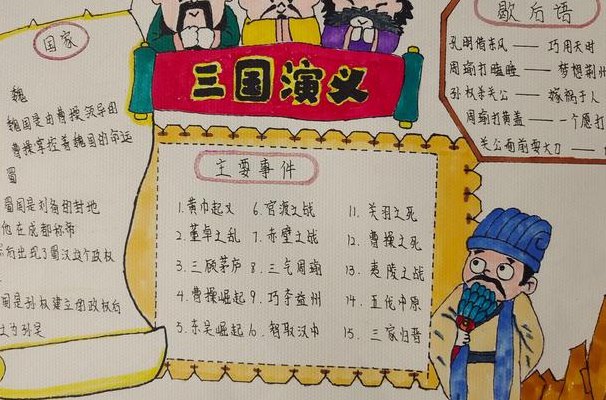 三国演义
国家
魏
魏国是由曹操领导团
曹操掌控着魏国的命运
蜀国是刘备的封地
他在成都称帝
而出现了蜀汉这个政权
国是孙权建立的政权后
为孙吴
主要事件
1.黄巾起义 6.官渡之战 11.关羽之死
2.董卓之乱 7.赤壁之战 12.曹操之死
3.三顾茅庐 8.三气周瑜 13.夷陵之战
4.曹操崛起 9.巧夺益州 14.五伐中原
5.东吴崛起 10.智取汉中 15.三家归晋
歇后语
孔明借东风——巧用天时
周瑜打瞌睡——梦想荆州
孙权杀关公——嫁祸于人
周瑜打黄盖——一个愿打
关公面前耍大刀——